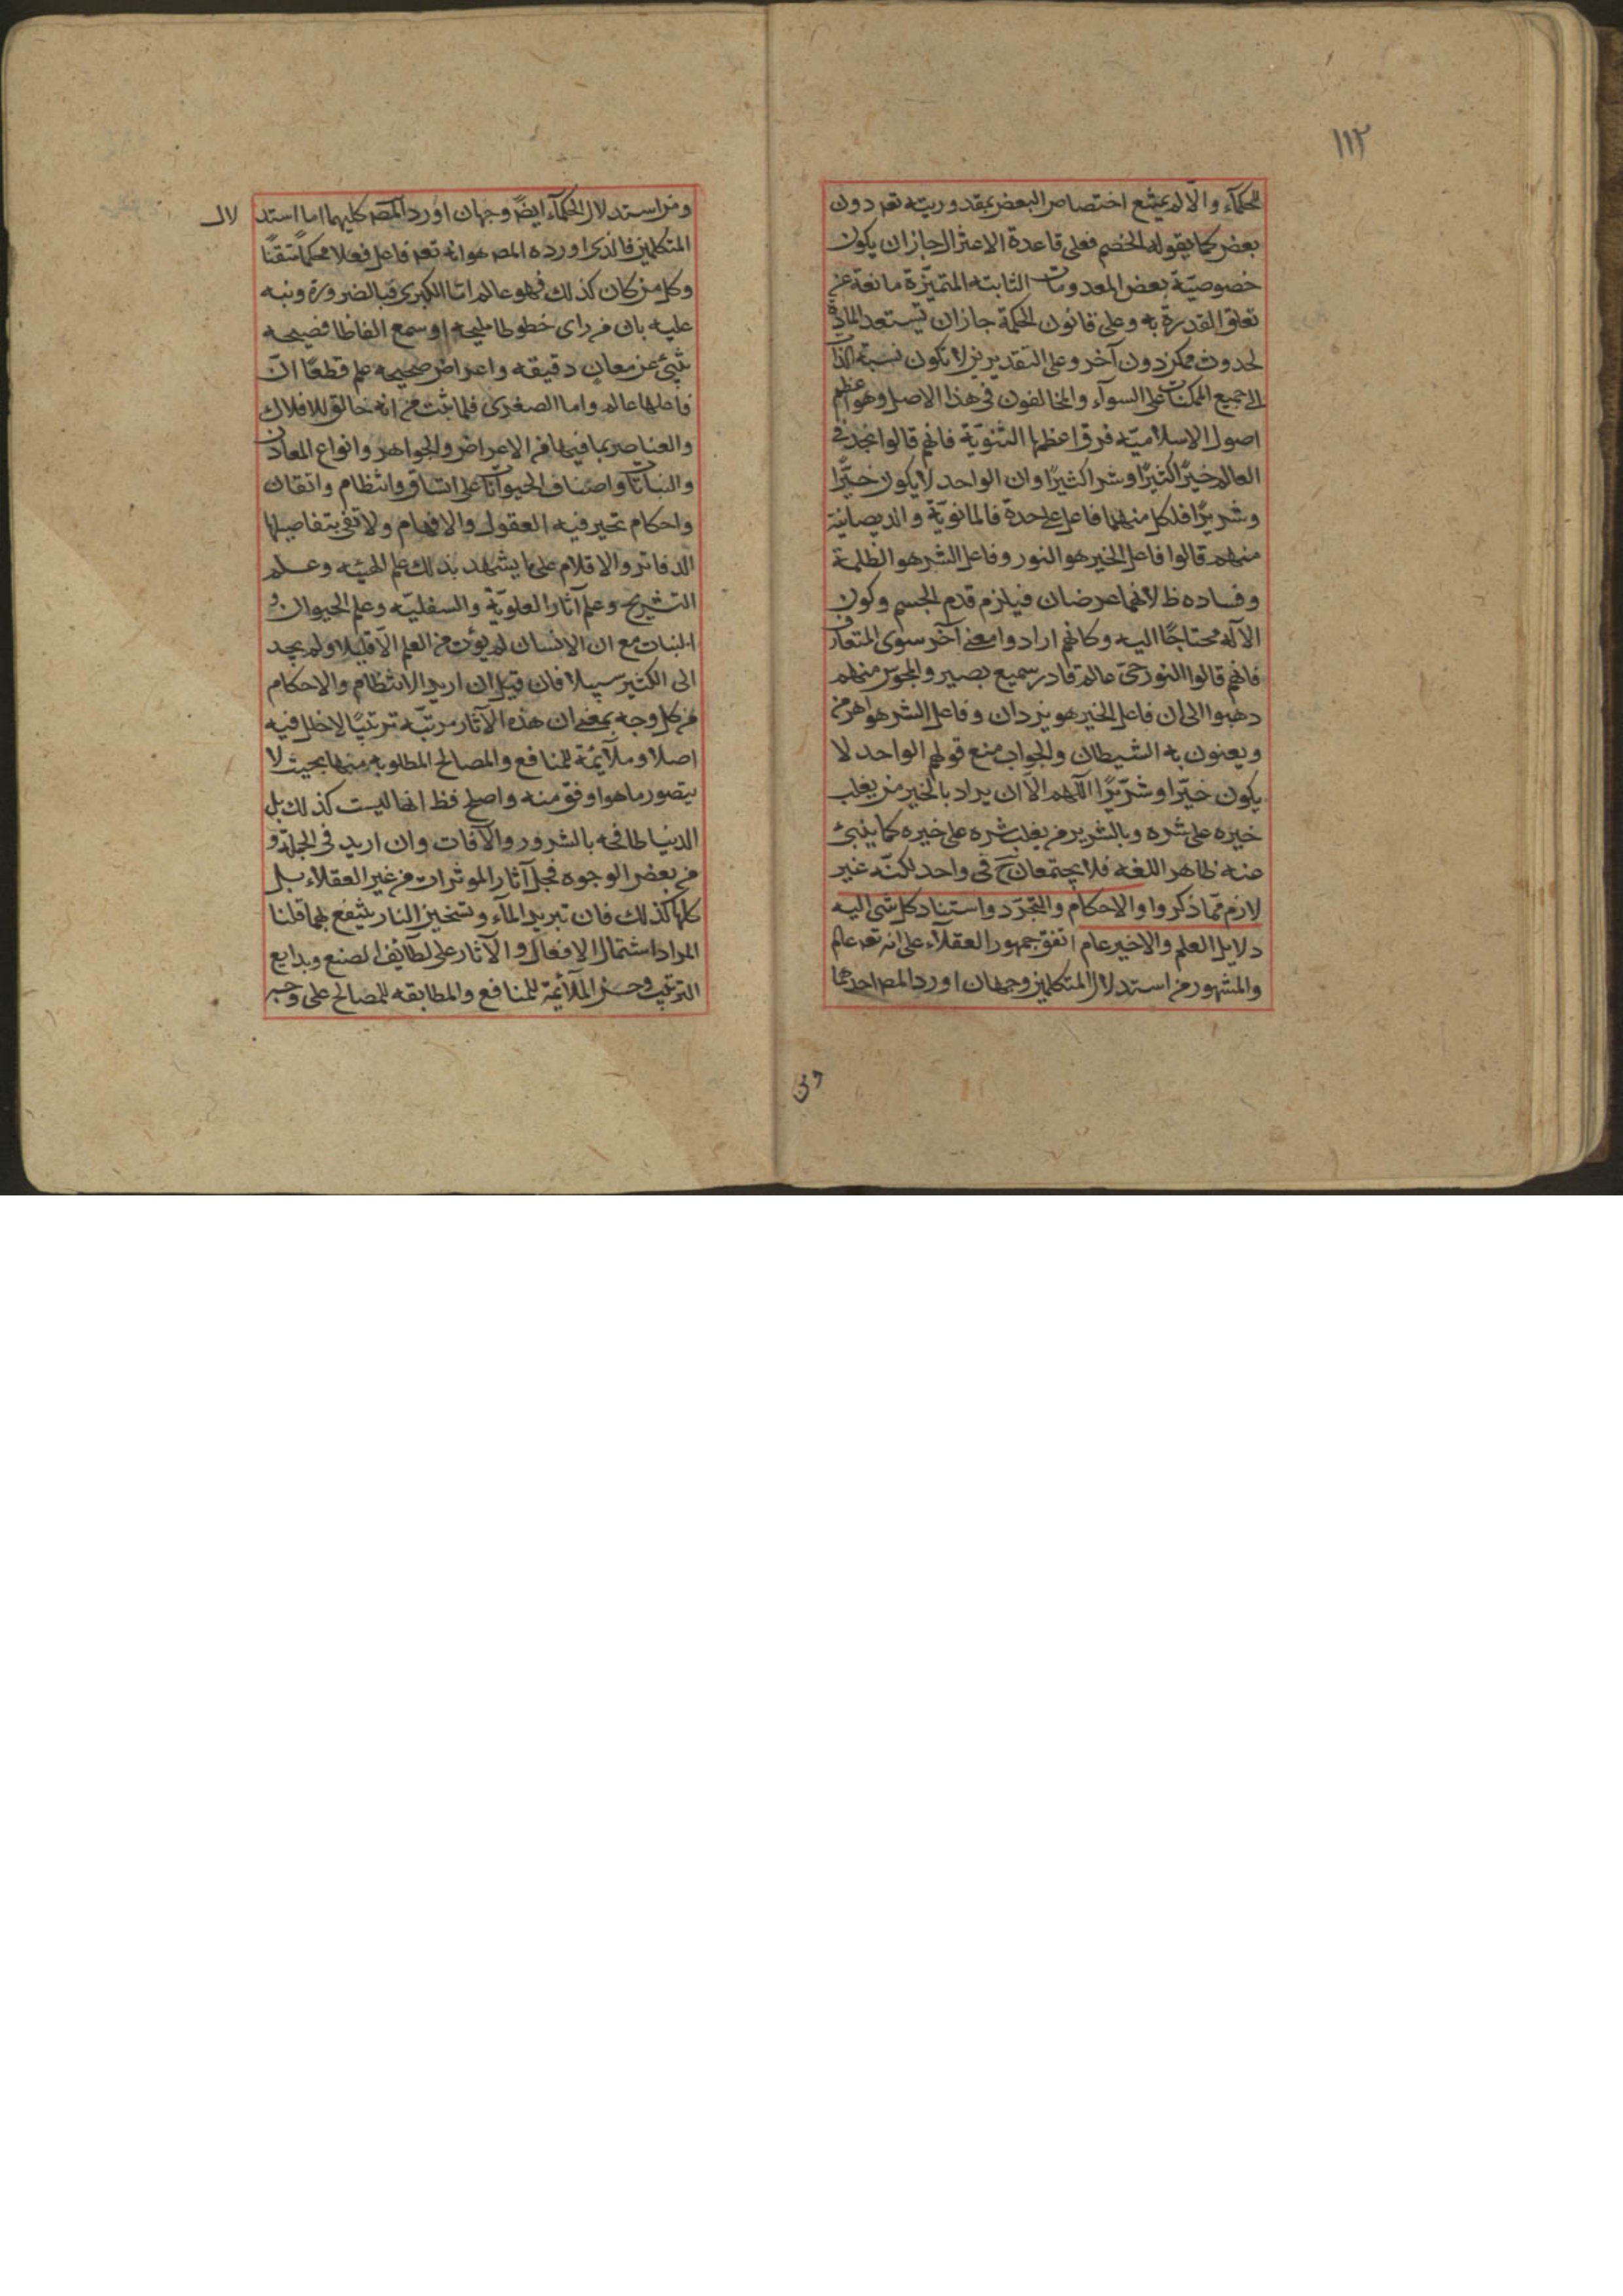 ١١٢
الحكمآء والّا لم يمتنع اختصاص البعض بمقدوريته تعم دون
بعض كما يقوله الخصم فعلى قاعدة الاعتزال جاز ان يكون
خصوصيّة بعض المعدومات الثابته المتميّزة مانعة عن
تعلق القدرة به وعلى قانون الحكمة جاز ان تستعد المادة
لحدوث ممكن دون آخر وعلى التقديرين لا تكون نسبة الذات
الى جميع الممكنات على السوآء والمخالفون فى هذا الاصل وهو اعظم
اصول الاسلاميّه فرق اعظمها الثنويّة فانهم قالوا نجد فى
العالم خيرًا كثيرًا وشرا كثيرًا وان الواحد لا يكون خيّرًا
وشريرًا فلكل منهما فاعل على حدة فالمانويّة والديصانية
منهم قالوا فاعل الخير هو النور وفاعل الشر هو الظلمة
وفساده ظ لانهما عرضان فيلزم قدم الجسم وكون
الآله محتاجًا اليه وكانهم ارادوا معنى آخر سوى المتعارف
فانهم قالوا النور حىّ عالم قادر سميع بصير والمجوس منهم
ذهبوا الى ان فاعل الخير هو يزدان وفاعل الشر هو اهرمن
ويعنون به الشيطان والجواب منع قولهم الواحد لا
يكون خيّرا وشرّيرًا اللهم الّا ان يراد بالخير من يغلب
خيره على شره وبالشرير من يغلب شره على خيره كما ينبئ
عنه ظاهر اللغه فلا يجتمعان ح فى واحد لكنّه غير
لازم ممّا ذكروا والاحكام والتجرّد واستناد كل شى اليه
دلايل العلم والاخير عام اتفق جمهور العقلاء على انه تعم عالم
والمشهور من استدلال المتكلمين وجهان اورد المص احدهما
ومن استدلال الحكمآء ايضً وجهان اورد المص كليهما اما استد لال
المتكلمين فالذى اورده المص هو انه تعم فاعل فعلا محكمًا متقنًا
وكل من كان كذلك فهو عالم امّا الكبرى فبالضرورة وننبه
عليه بان من راى خطوطا مليحه او سمع الفاظا فصيحه
تنبئ عن معان دقيقه واعراض صحيحه علم قطعًا انّ
فاعلها عالم واما الصغرى فلما ثبت من انه خالق للافلاك
والعناصر بما فيها من الاعراض والجواهر وانواع المعادن
والنباتات واصناف الحيوانات على اتساق وانتظام واتقان
واحكام تحير فيه العقول والافهام ولا تفى بتفاصيلها
الدفاتر والاقلام على ما يشهد بذلك علم الهيئه وعلم
التشريح وعلم آثار العلويّة والسفليّه وعلم الحيوان و
النبات مع ان الانسان لم يؤت من العلم الّا قليلا ولم يجد
الى الكثير سبيلا فان قيل ان اريد الانتظام والاحكام
من كل وجه بمعنى ان هذه الآثار مرتبّه ترتيبًا لا خلل فيه
اصلا وملآئمة للمنافع والمصالح المطلوبه منها بحيث لا
يتصور ما هو اوفق منه واصلح فظ انها ليست كذلك بل
الدنيا طافحه بالشرور والآفات وان اريد فى الجملة و
من بعض الوجوه فجل آثار الموثرات من غير العقلاء بل
كلها كذلك فان تبريد المآء وتسخين النار ينتفع بهما قلنا
المراد اشتمال الافعال والآثار على لطائف الصنع وبدايع
الترتيب وحسن الملآئمة للمنافع والمطابقه للمصالح على وجه